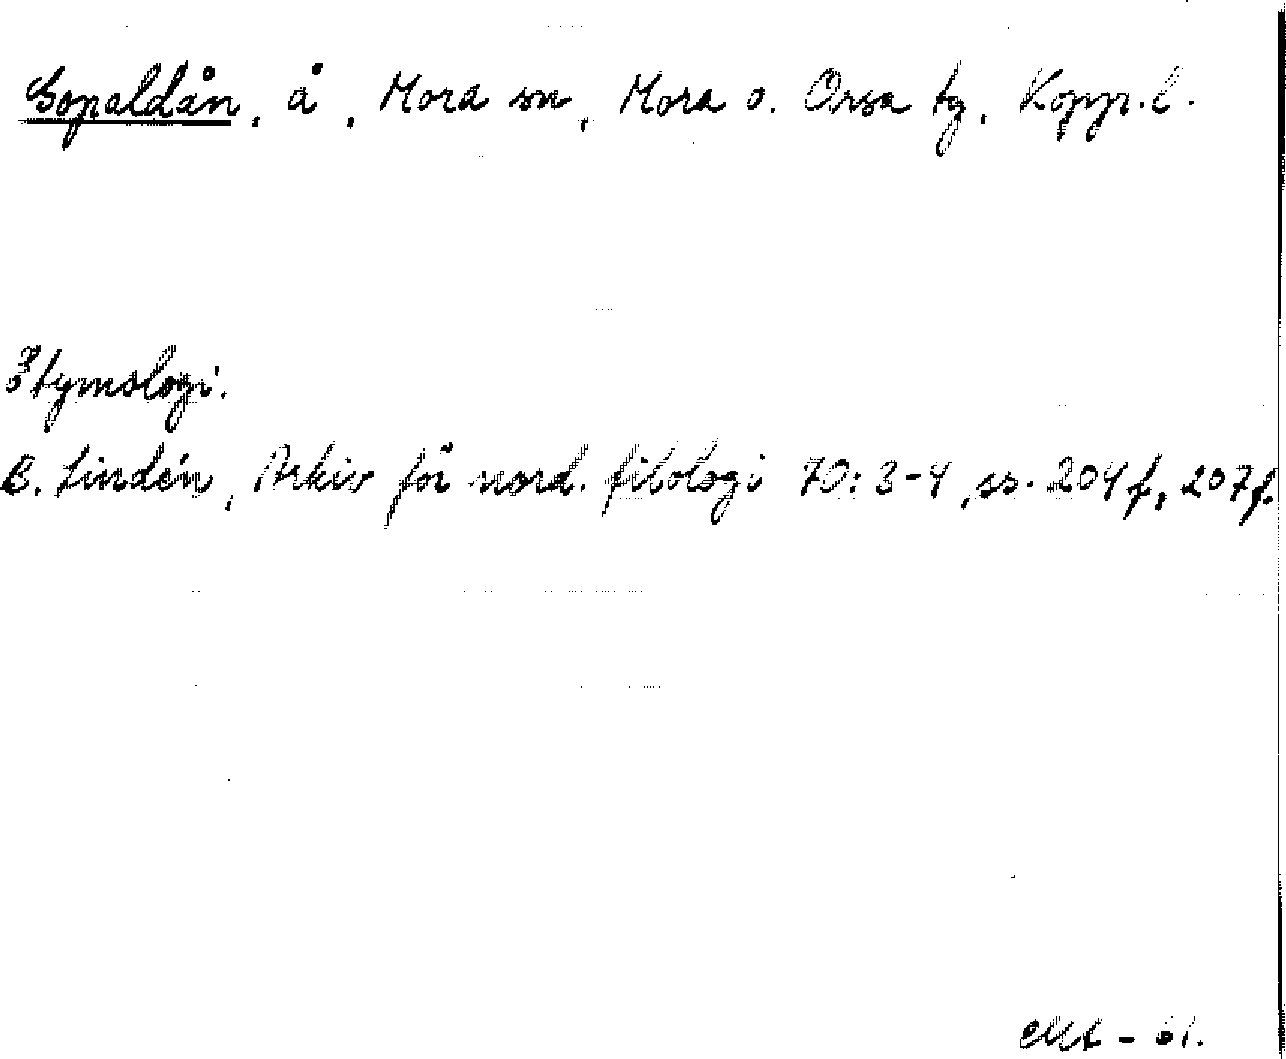 Gopaldån, å, Mora sn, Mora o. Orsa tg, Kopp. l.
Etymologi.
B. Lindén, Arkiv för nord. filologi 70: 3-4, ss. 204 f, 207 f.
- 61.